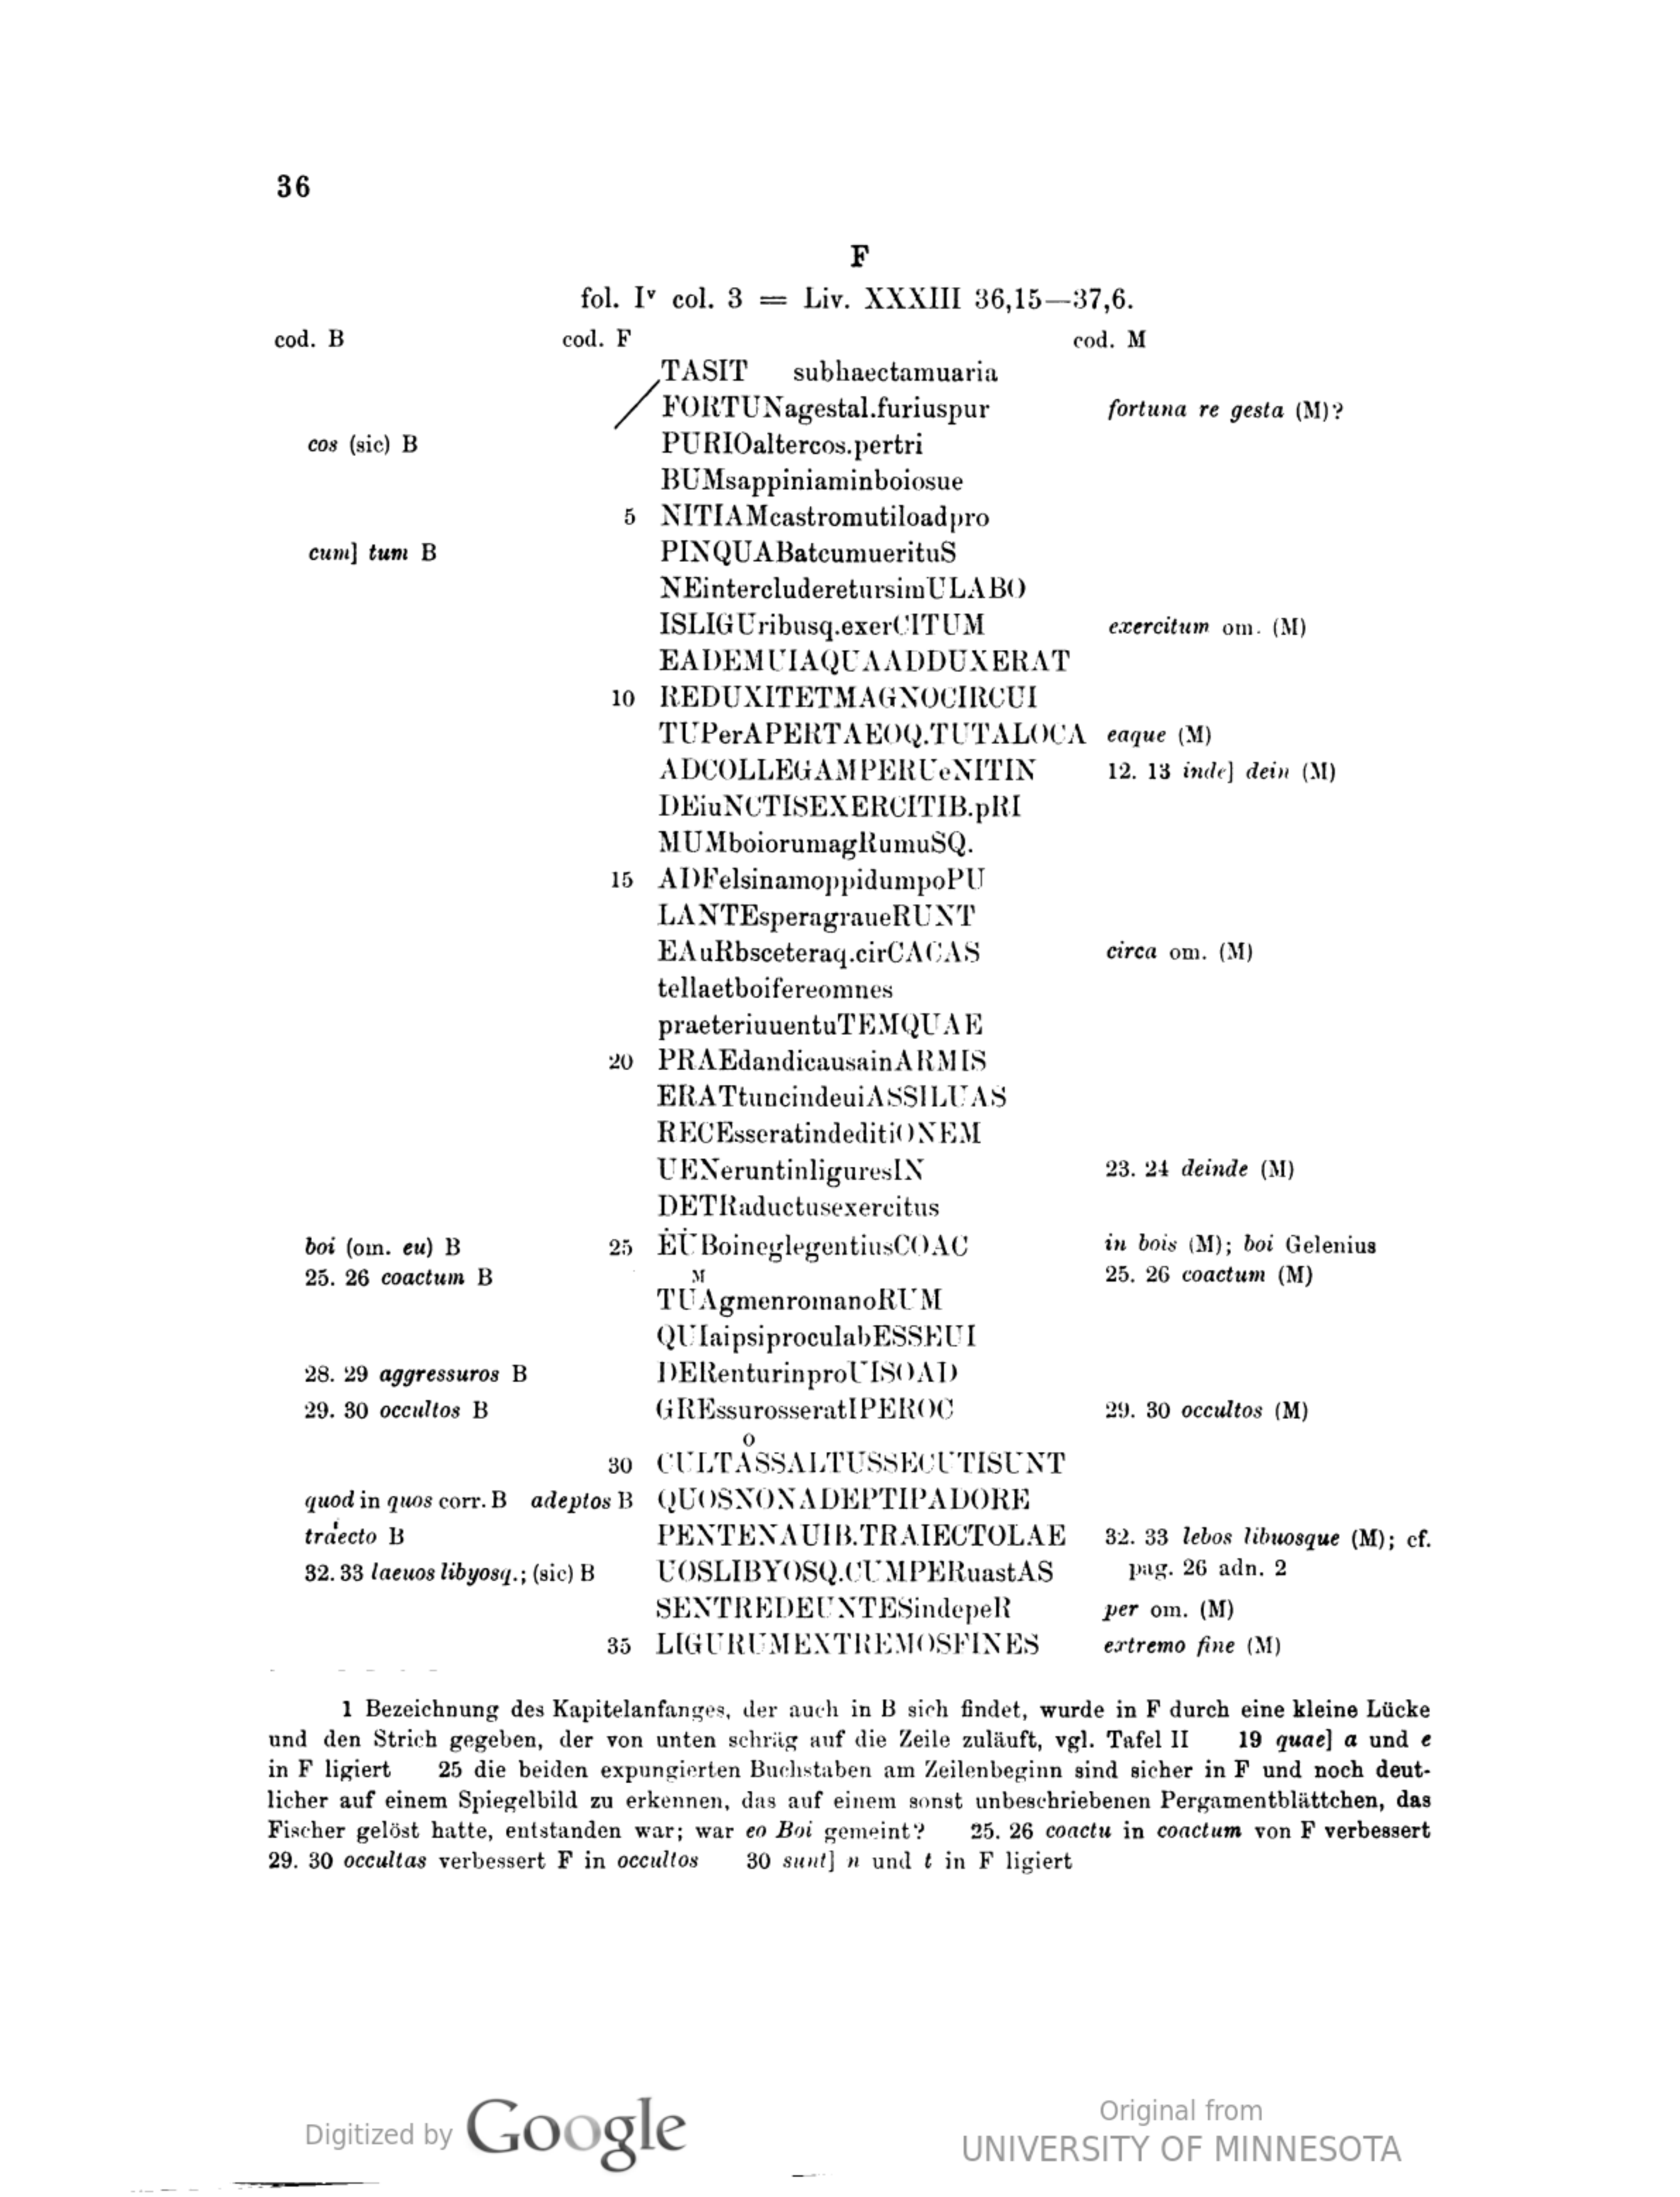 36
F
fol. Iᵛ col. 3 = Liv. XXXIII 36,15—37,6.
cod. B cod. F cod. M
TASIT subhaectamuaria
FORTUNagestal.furiuspur fortuna re gesta (M)?
cos (sic) B PURIOaltercos.pertri
BUMsappiniaminboiosue
5 NITIAMcastromutiloadpro
cum] tum B PINQUABatcumuerituS
NEintercluderetursimULABO
ISLIGUribusq.exerCITUM exercitum om. (M)
EADEMUIAQUAADDUXERAT
10 REDUXITETMAGNOCIRCUI
TUPerAPERTAEOQ.TUTALOCA eaque (M)
ADCOLLEGAMPERUeNITIN 12. 13 inde] dein (M)
DEiuNCTISEXERCITIB.pRI
MUMboiorumagRumuSQ.
15 ADFelsinamoppidumpoPU
LANTEsperagraueRUNT
EAuRbsceteraq.cirCACAS circa om. (M)
tellaetboifereomnes
praeteriuuentuTEMQUAE
20 PRAEdandicausainARMIS
ERATtuncindeuiASSILUAS
RECEsseratindeditiONEM
UENeruntinliguresIN 23. 24 deinde (M)
DETRaductusexercitus
boi (om. eu) B 25 ĖU̇BoineglegentiusCOAC in bois (M); boi Gelenius
25. 26 coactum B M 25. 26 coactum (M)
TUAgmenromanoRUM
QUIaipsiproculabESSEUI
28. 29 aggressuros B DERenturinproUISOAD
29. 30 occultos B GREssurosseratIPEROC 29. 30 occultos (M)
O
30 CULTȦSSALTUSSECUTISUNT
quod in quos corr. B adeptos B QUOSNONADEPTIPADORE
traiecto B PENTENAUIB.TRAIECTOLAE 32. 33 lebos libuosque (M); cf.
32. 33 laeuos libyosq.; (sic) B UOSLIBYOSQ.CUMPERuastAS pag. 26 adn. 2
SENTREDEUNTESindepeR per om. (M)
35 LIGURUMEXTREMOSFINES extremo fine (M)
1 Bezeichnung des Kapitelanfanges, der auch in B sich findet, wurde in F durch eine kleine Lücke
und den Strich gegeben, der von unten schräg auf die Zeile zuläuft, vgl. Tafel II 19 quae] a und e
in F ligiert 25 die beiden expungierten Buchstaben am Zeilenbeginn sind sicher in F und noch deut-
licher auf einem Spiegelbild zu erkennen, das auf einem sonst unbeschriebenen Pergamentblättchen, das
Fischer gelöst hatte, entstanden war; war eo Boi gemeint? 25. 26 coactu in coactum von F verbessert
29. 30 occultas verbessert F in occultos 30 sunt] n und t in F ligiert
Digitized by Google
Original from
UNIVERSITY OF MINNESOTA